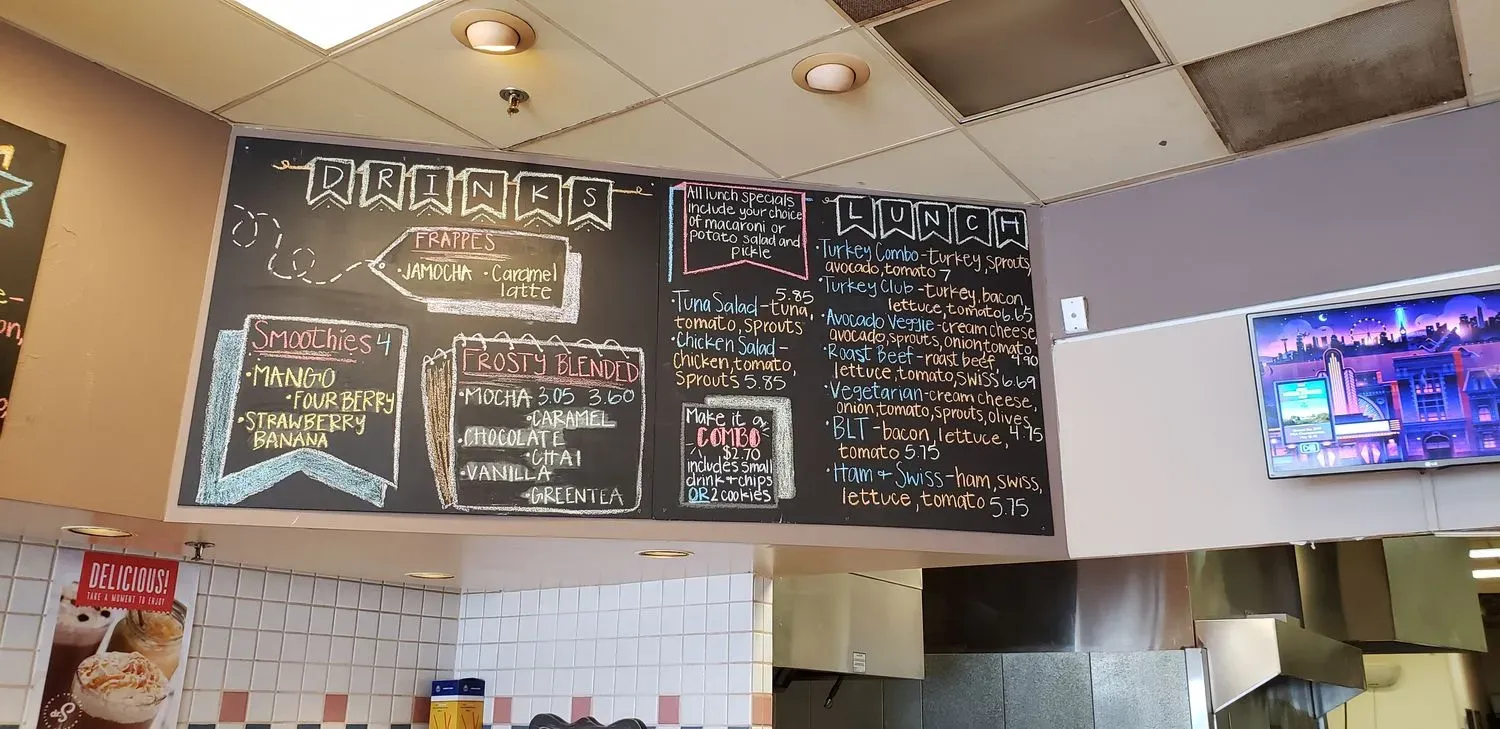 DRINKS
FRAPPES
·JAMOCHA ·Caramel
latte
SMOOTHIES 4
·MANGO
·FOUR BERRY
·STRAWBERRY
BANANA
FROSTY BLENDED
·MOCHA 3.05 3.60
·CARAMEL
·CHOCOLATE
·CHAI
·VANILLA
·GREENTEA
All lunch specials
include your choice
of macaroni or
potato salad and
pickle
·Tuna Salad-tuna, 5.85
tomato, sprouts
·Chicken Salad-
chicken, tomato,
sprouts 5.85
Make it a
COMBO
$2.70
includes small
drink + chips
OR 2 cookies
LUNCH
·Turkey Combo-turkey, sprouts,
avocado, tomato 7
·Turkey Club-turkey, bacon,
lettuce, tomato 6.65
·Avocado Veggie-cream cheese,
avocado, sprouts, onion tomato
4.90
·Roast Beef-roast beef,
lettuce, tomato, swiss 6.69
·Vegetarian-cream cheese,
onion, tomato, sprouts, olives
4.75
·BLT-bacon, lettuce,
tomato 5.75
·Ham + Swiss-ham, swiss,
lettuce, tomato 5.75
DELICIOUS!
TAKE A MOMENT TO ENJOY
LG